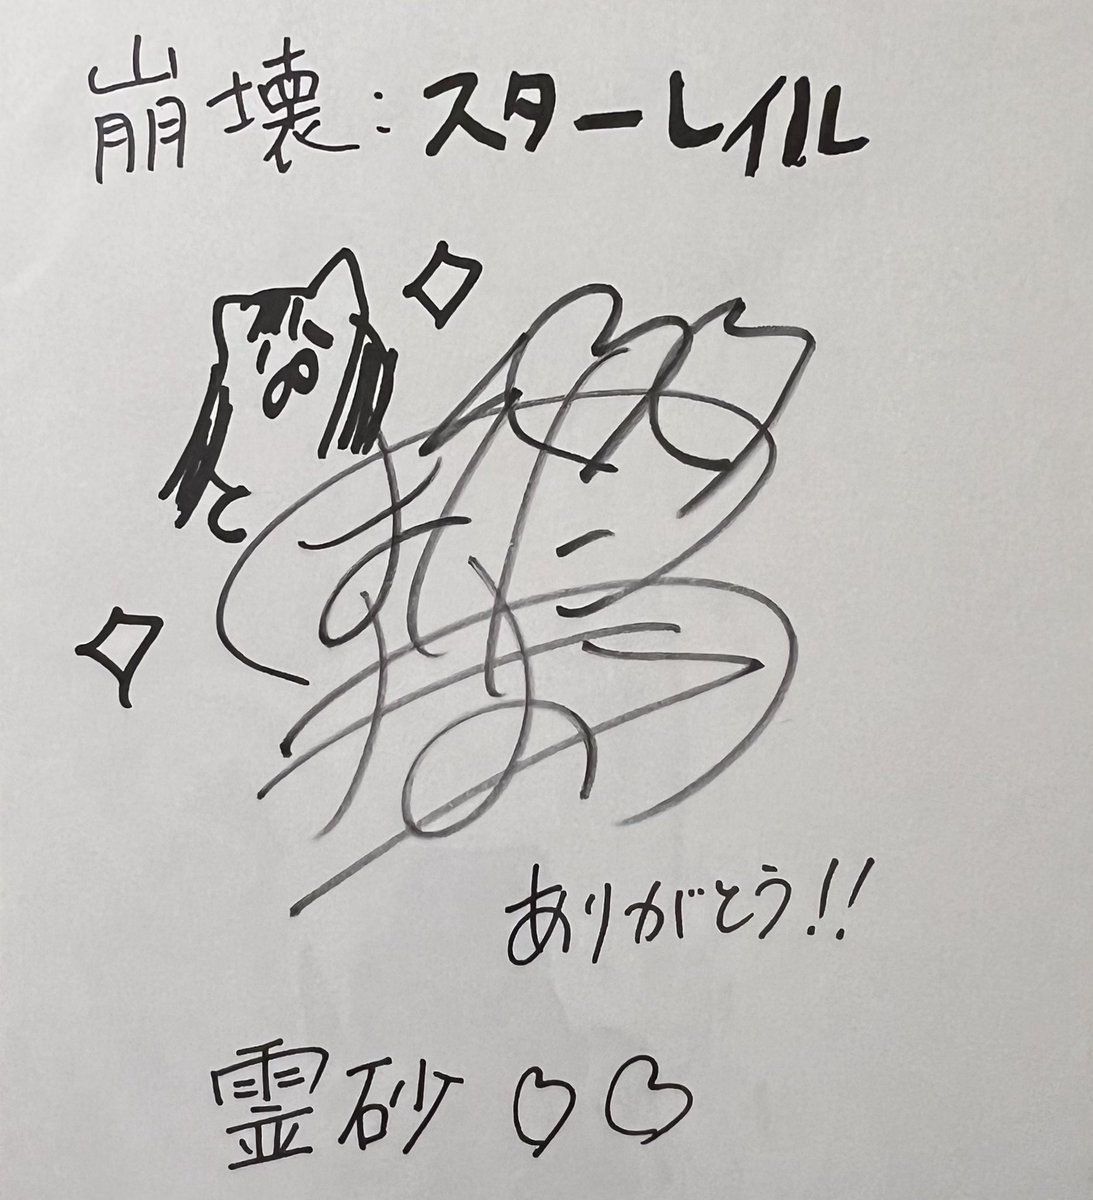 崩壊:スターレイル
ありがとう!!
霊砂♡♡